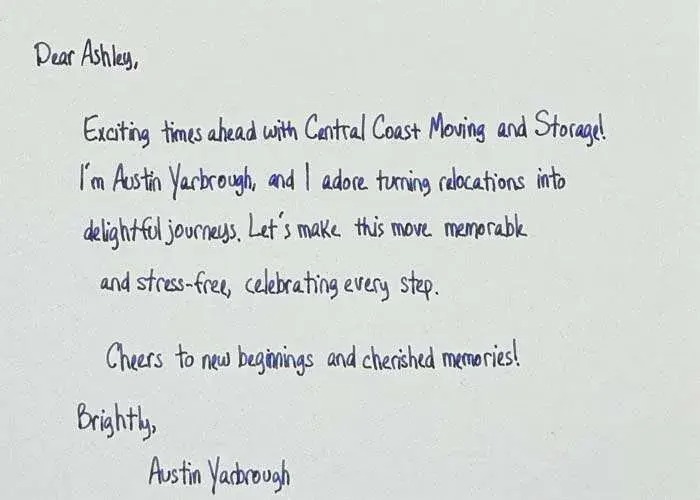 Dear Ashley,
Exciting times ahead with Central Coast Moving and Storage!
I'm Austin Yarbrough, and I adore turning relocations into
delightful journeys. Let's make this move memorable
and stress-free, celebrating every step.
Cheers to new beginnings and cherished memories!
Brightly,
Austin Yarbrough